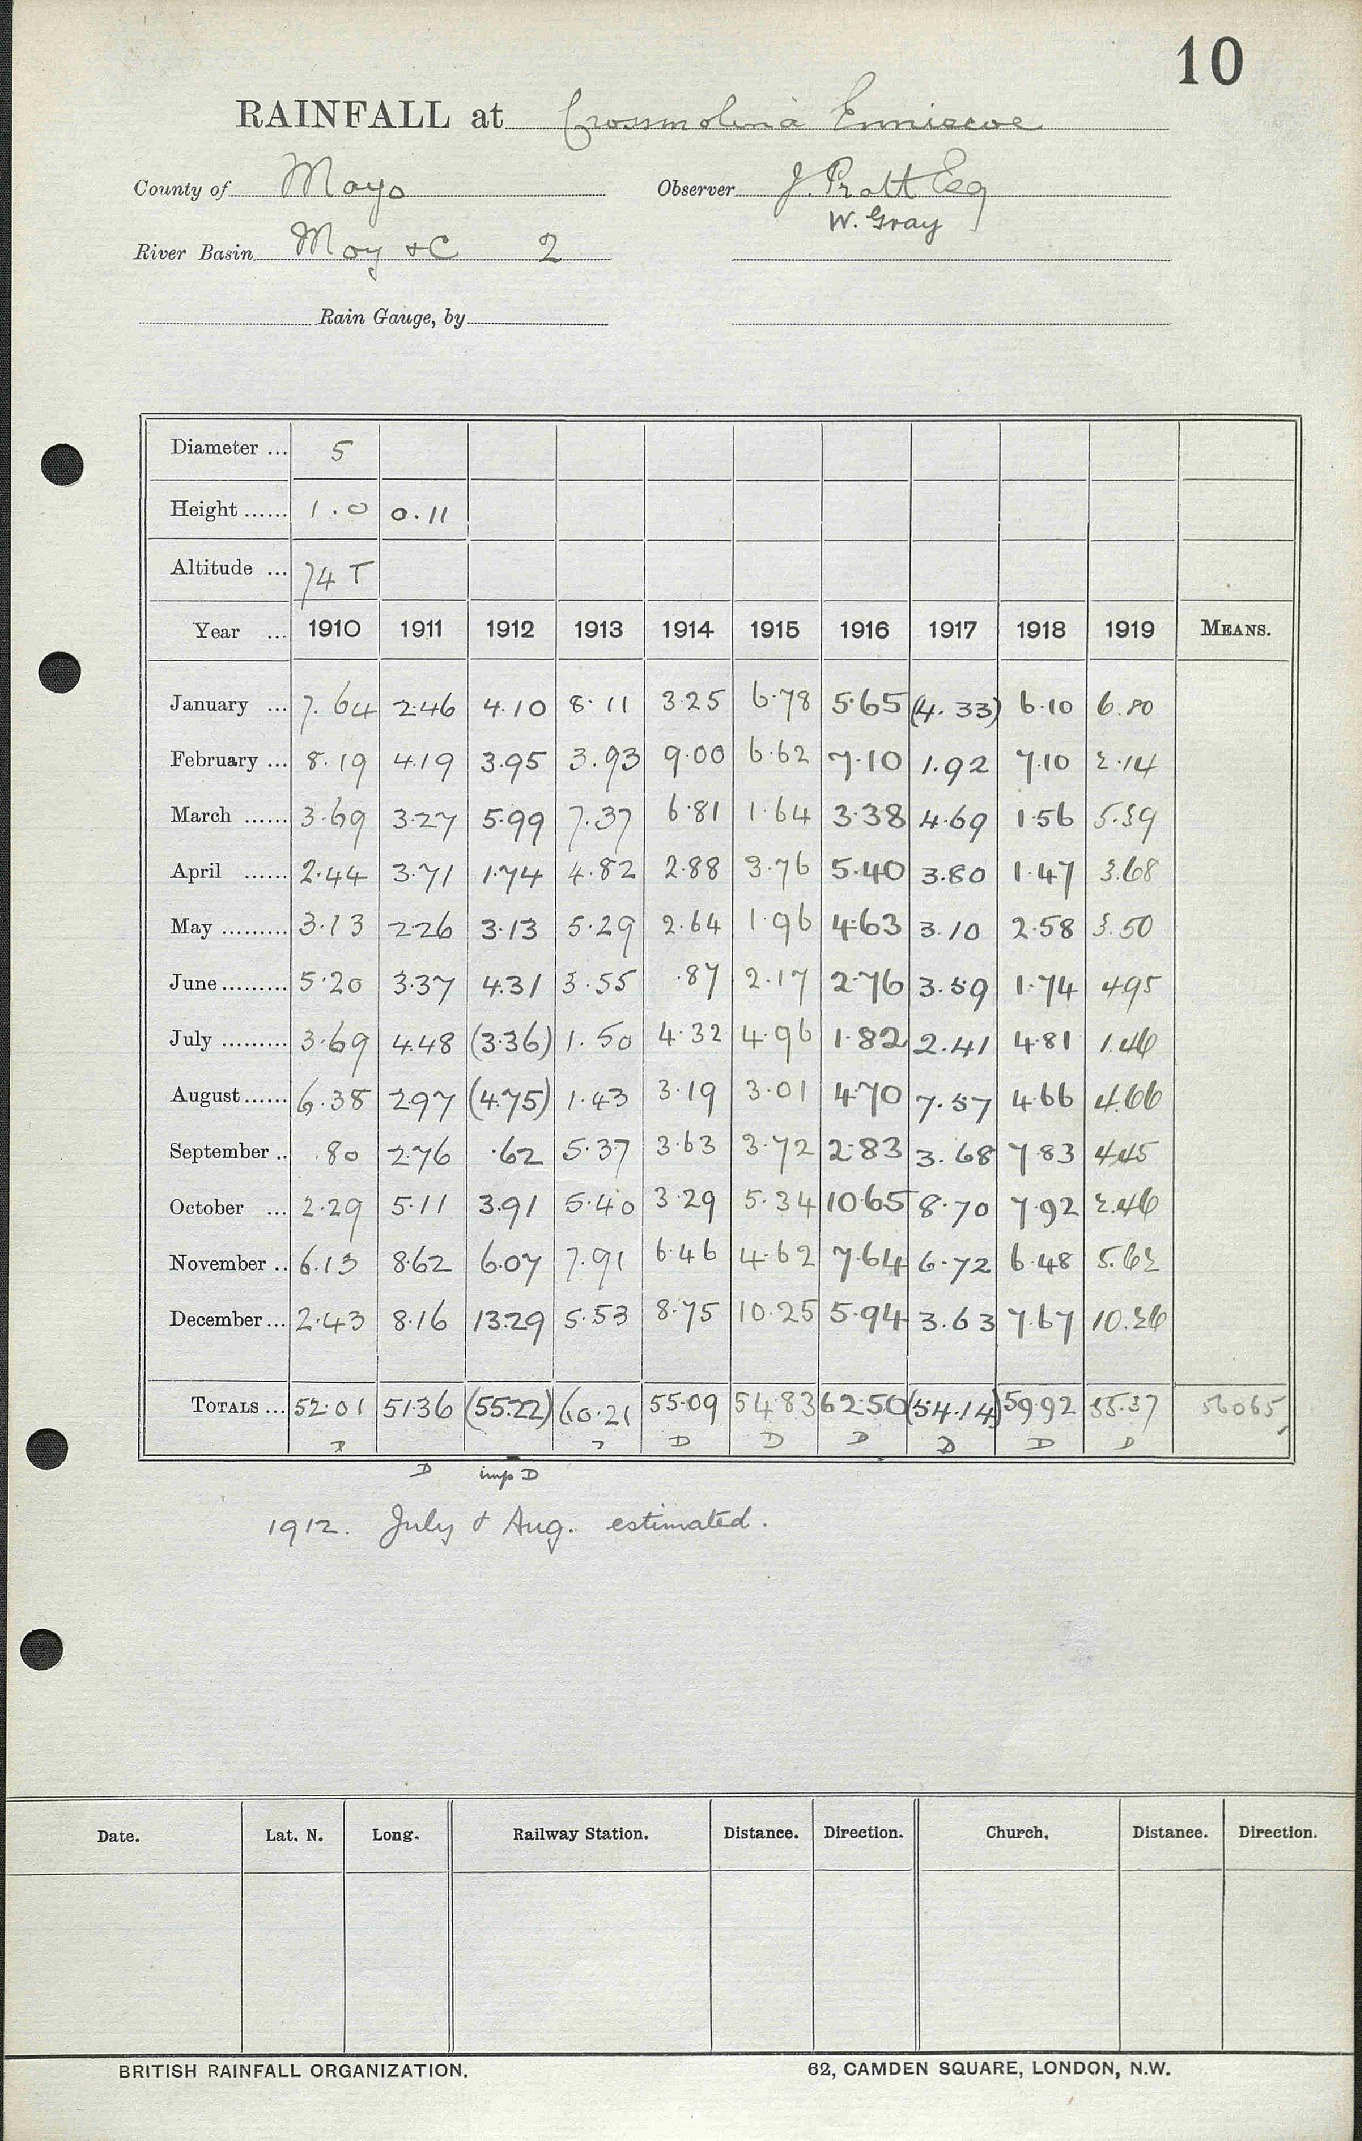 10
RAINFALL at Crossmolina Enniscoe
County of Mayo Observer J. Pratt Esq
W. Gray
River Basin Moy & C 2
Rain Gauge, by
Diameter ... 5
Height ...... 1.0 0.11
Altitude ... 74 T
Year ... 1910 1911 1912 1913 1914 1915 1916 1917 1918 1919 MEANS.
January ... 7.64 2.46 4.10 8.11 3.25 6.78 5.65 (4.33) 6.10 6.80
February ... 8.19 4.19 3.95 3.93 9.00 6.62 7.10 1.92 7.10 2.14
March ...... 3.69 3.27 5.99 7.37 6.81 1.64 3.38 4.69 1.56 5.39
April ...... 2.44 3.71 1.74 4.82 2.88 3.76 5.40 3.80 1.47 3.68
May ......... 3.13 2.26 3.13 5.29 2.64 1.96 4.63 3.10 2.58 3.50
June ......... 5.20 3.37 4.31 3.55 .87 2.17 2.76 3.59 1.74 4.95
July ......... 3.69 4.48 (3.36) 1.50 4.32 4.96 1.82 2.41 4.81 1.46
August ...... 6.38 2.97 (4.75) 1.43 3.19 3.01 4.70 7.57 4.66 4.66
September .. .80 2.76 .62 5.37 3.63 3.72 2.83 3.68 7.83 4.45
October ... 2.29 5.11 3.91 5.40 3.29 5.34 10.65 8.70 7.92 2.46
November .. 6.13 8.62 6.07 7.91 6.46 4.62 7.64 6.72 6.48 5.62
December ... 2.43 8.16 13.29 5.53 8.75 10.25 5.94 3.63 7.67 10.26
TOTALS ... 52.01 51.36 (55.22) 60.21 55.09 54.83 62.50 (54.14) 59.92 55.37 56065
D D D D D D D D
D imp D
1912. July & Aug. estimated.
Date. Lat. N. Long. Railway Station. Distance. Direction. Church. Distance. Direction.
BRITISH RAINFALL ORGANIZATION. 62, CAMDEN SQUARE, LONDON, N.W.